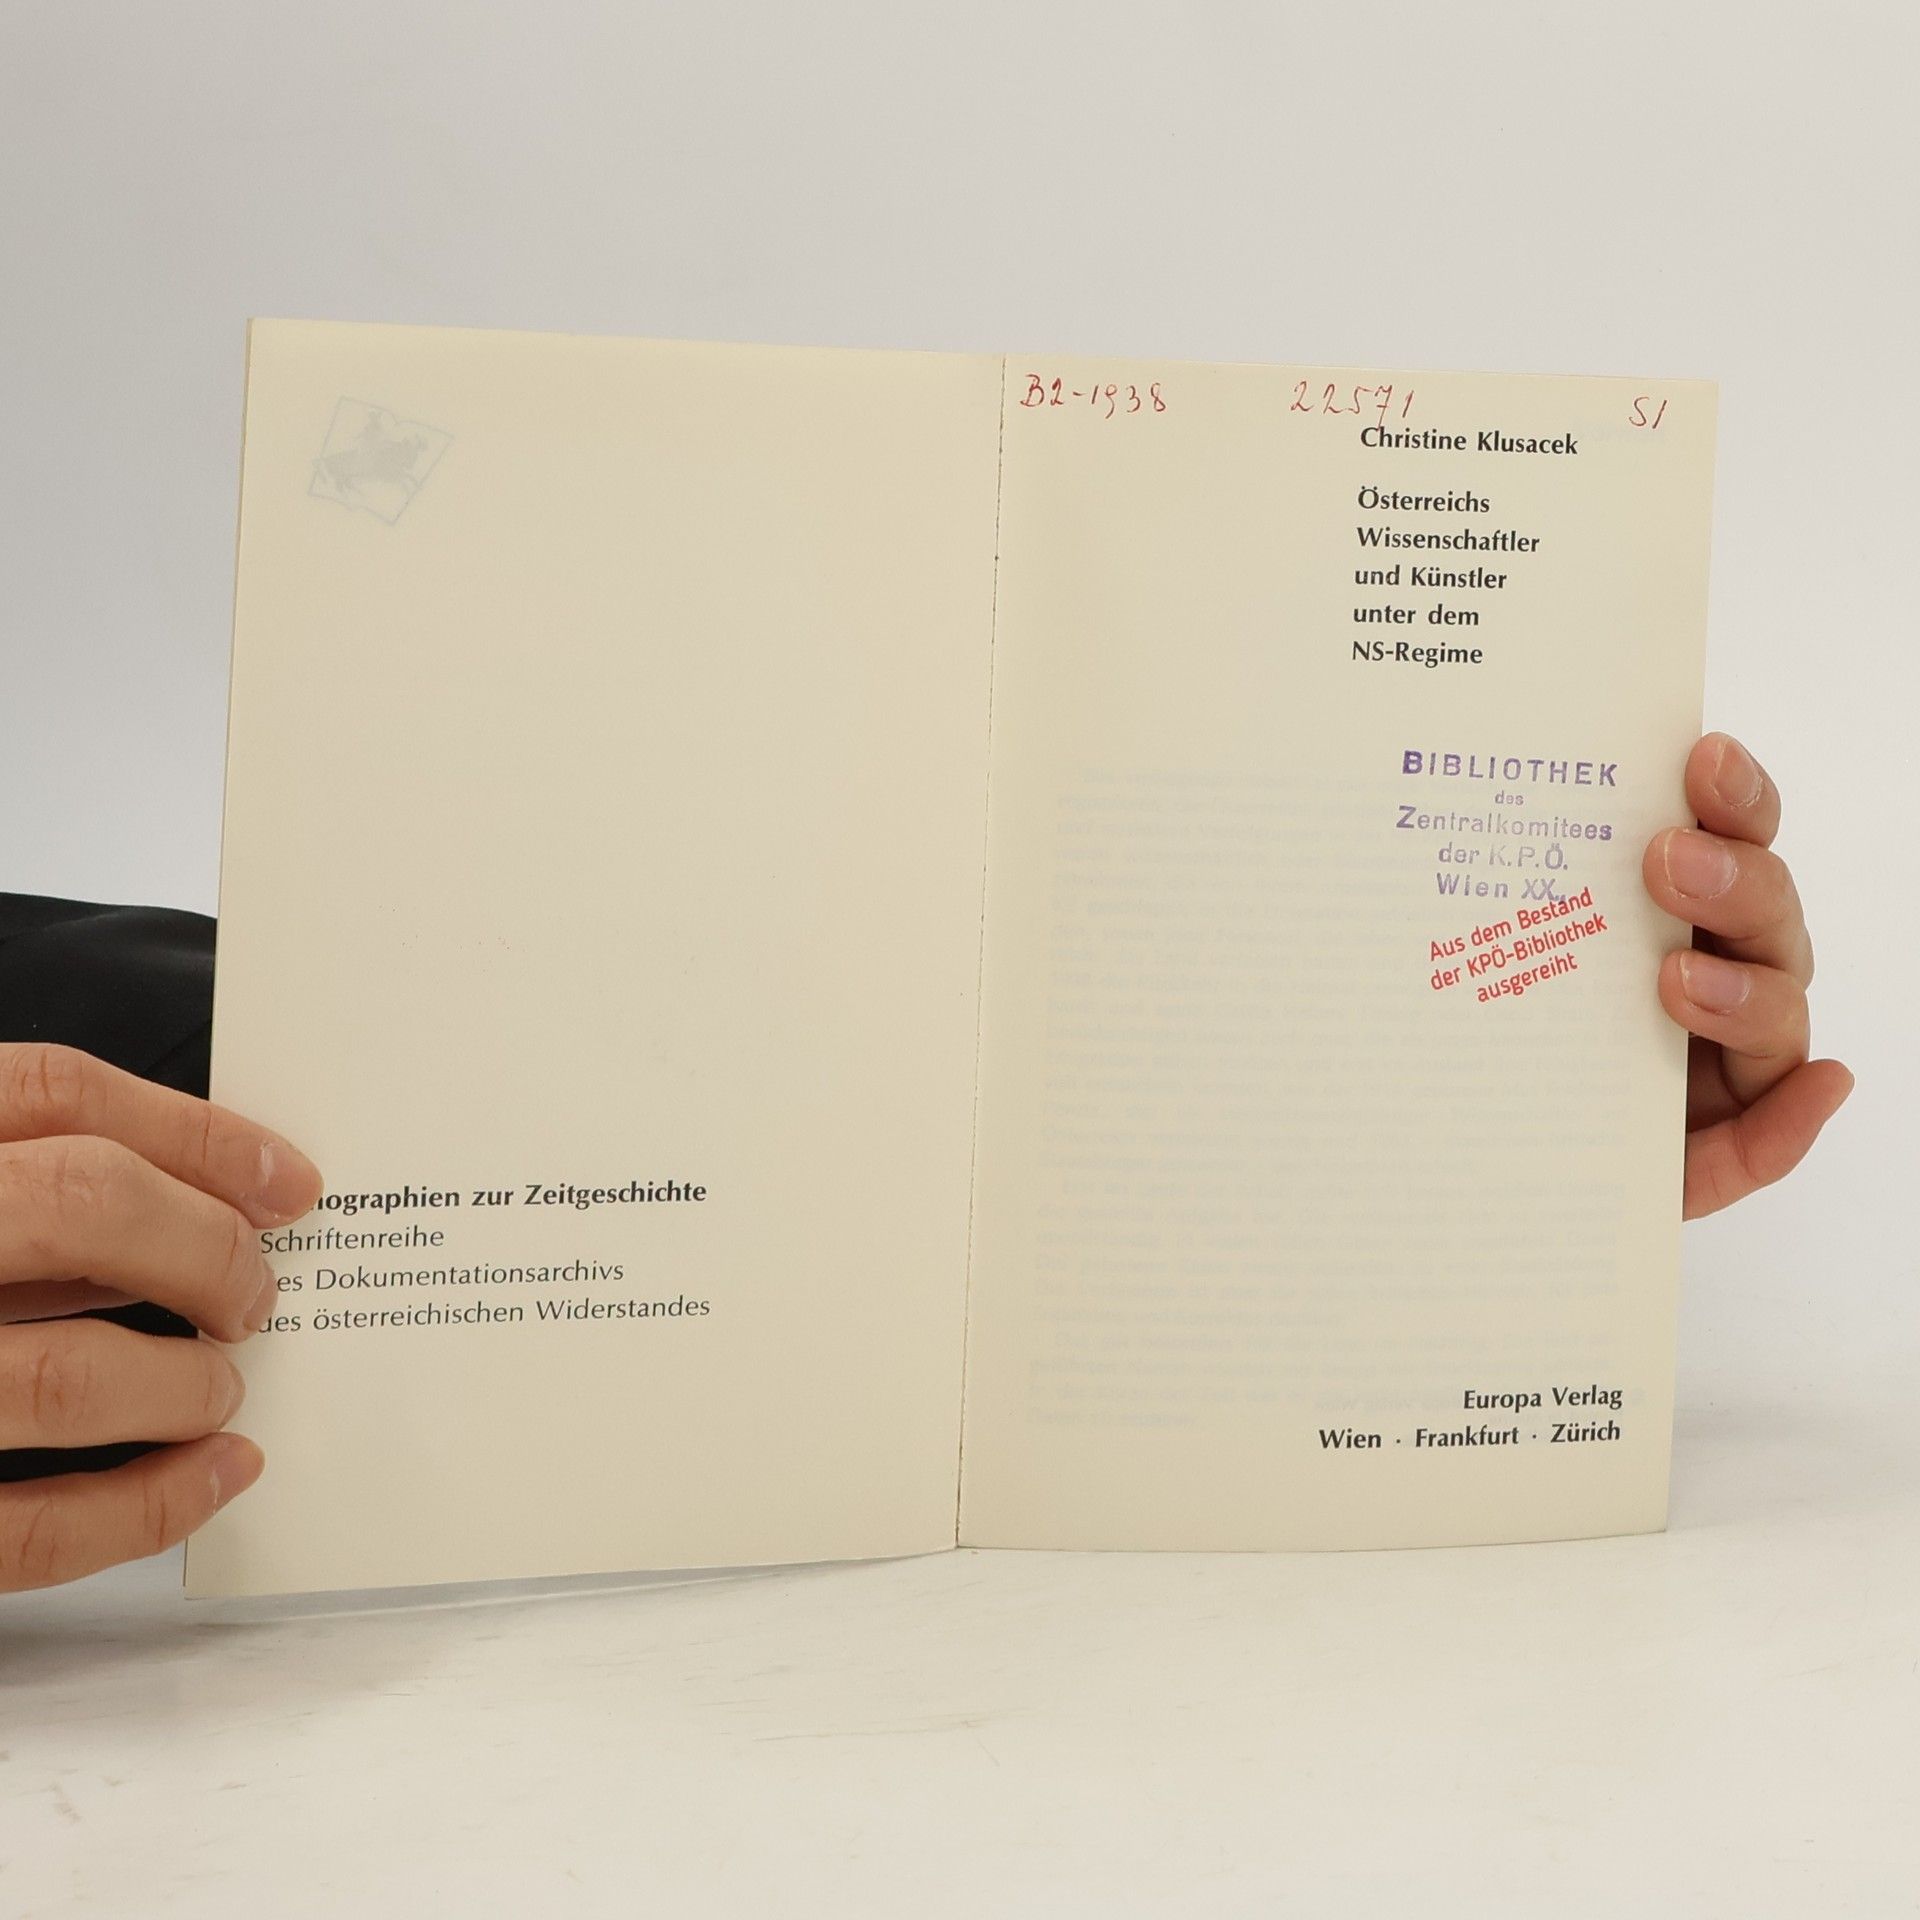 zur Zeitgeschichte
Schriftenreihe
Dokumentationsarchivs
des österreichischen Widerstandes
B2-1938 22571 S1
Christine Klusacek
Österreichs
Wissenschaftler
und Künstler
unter dem
NS-Regime
BIBLIOTHEK
des
Zentralkomitees
der K.P.Ö.
Wien XX.,
Aus dem Bestand
der KPÖ-Bibliothek
ausgereiht
Europa Verlag
Wien · Frankfurt · Zürich